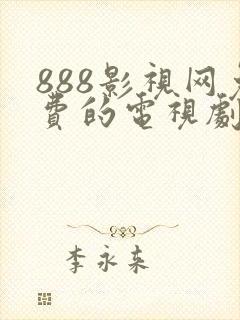 888影視网免
費的電視劇
李永来